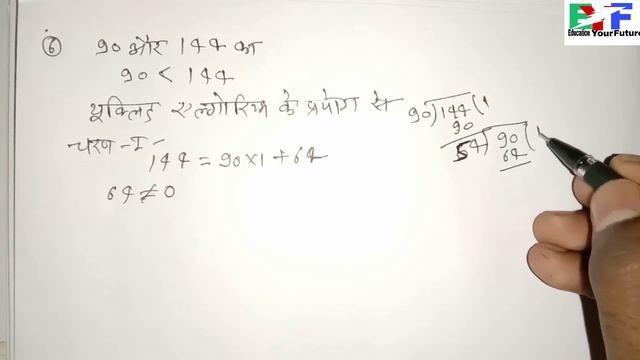 ⑥ 90 और 144 का
90 < 144
यूक्लिड एल्गोरिथ्म के प्रयोग से
चरण - I -
144 = 90 × 1 + 64
64 ≠ 0
90)144(1
90
54)90(
64
EYF
Education Your Future